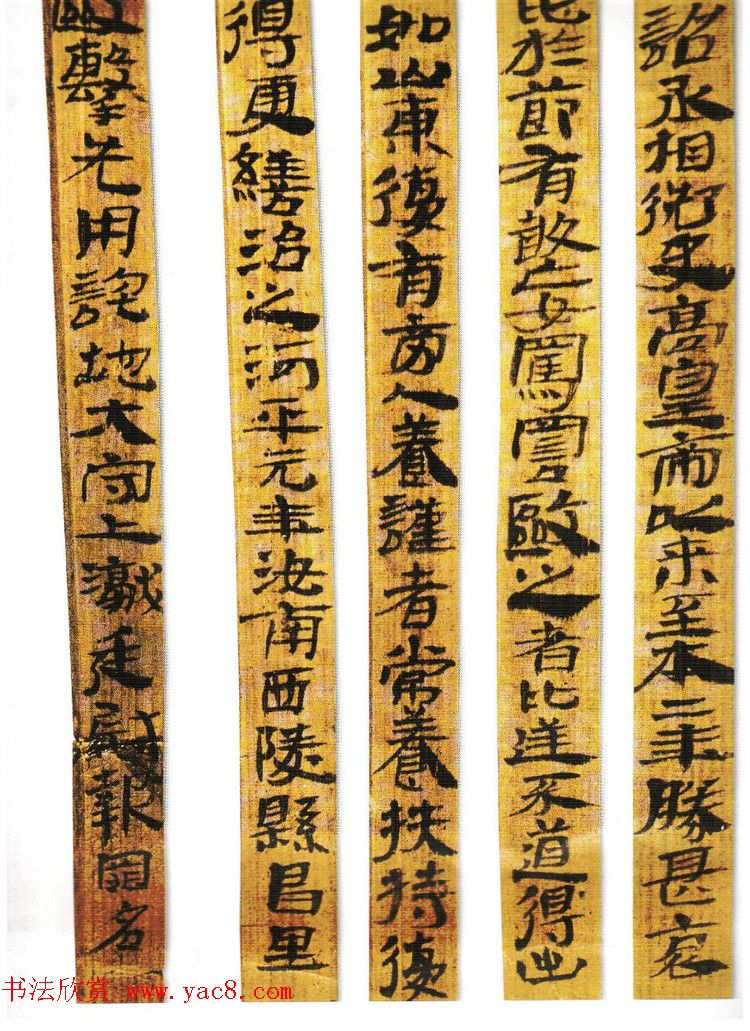 詔丞相御史高皇帝以來至本二年勝甚哀
比於節有敢妄罵詈毆之者比逆不道得出
如山東復有旁人養謹者常養扶持復
得更繕治之河平元年汝南西陵縣昌里
擊先用詑地大守上讞廷尉報罪名
书法欣赏 www.yac8.com